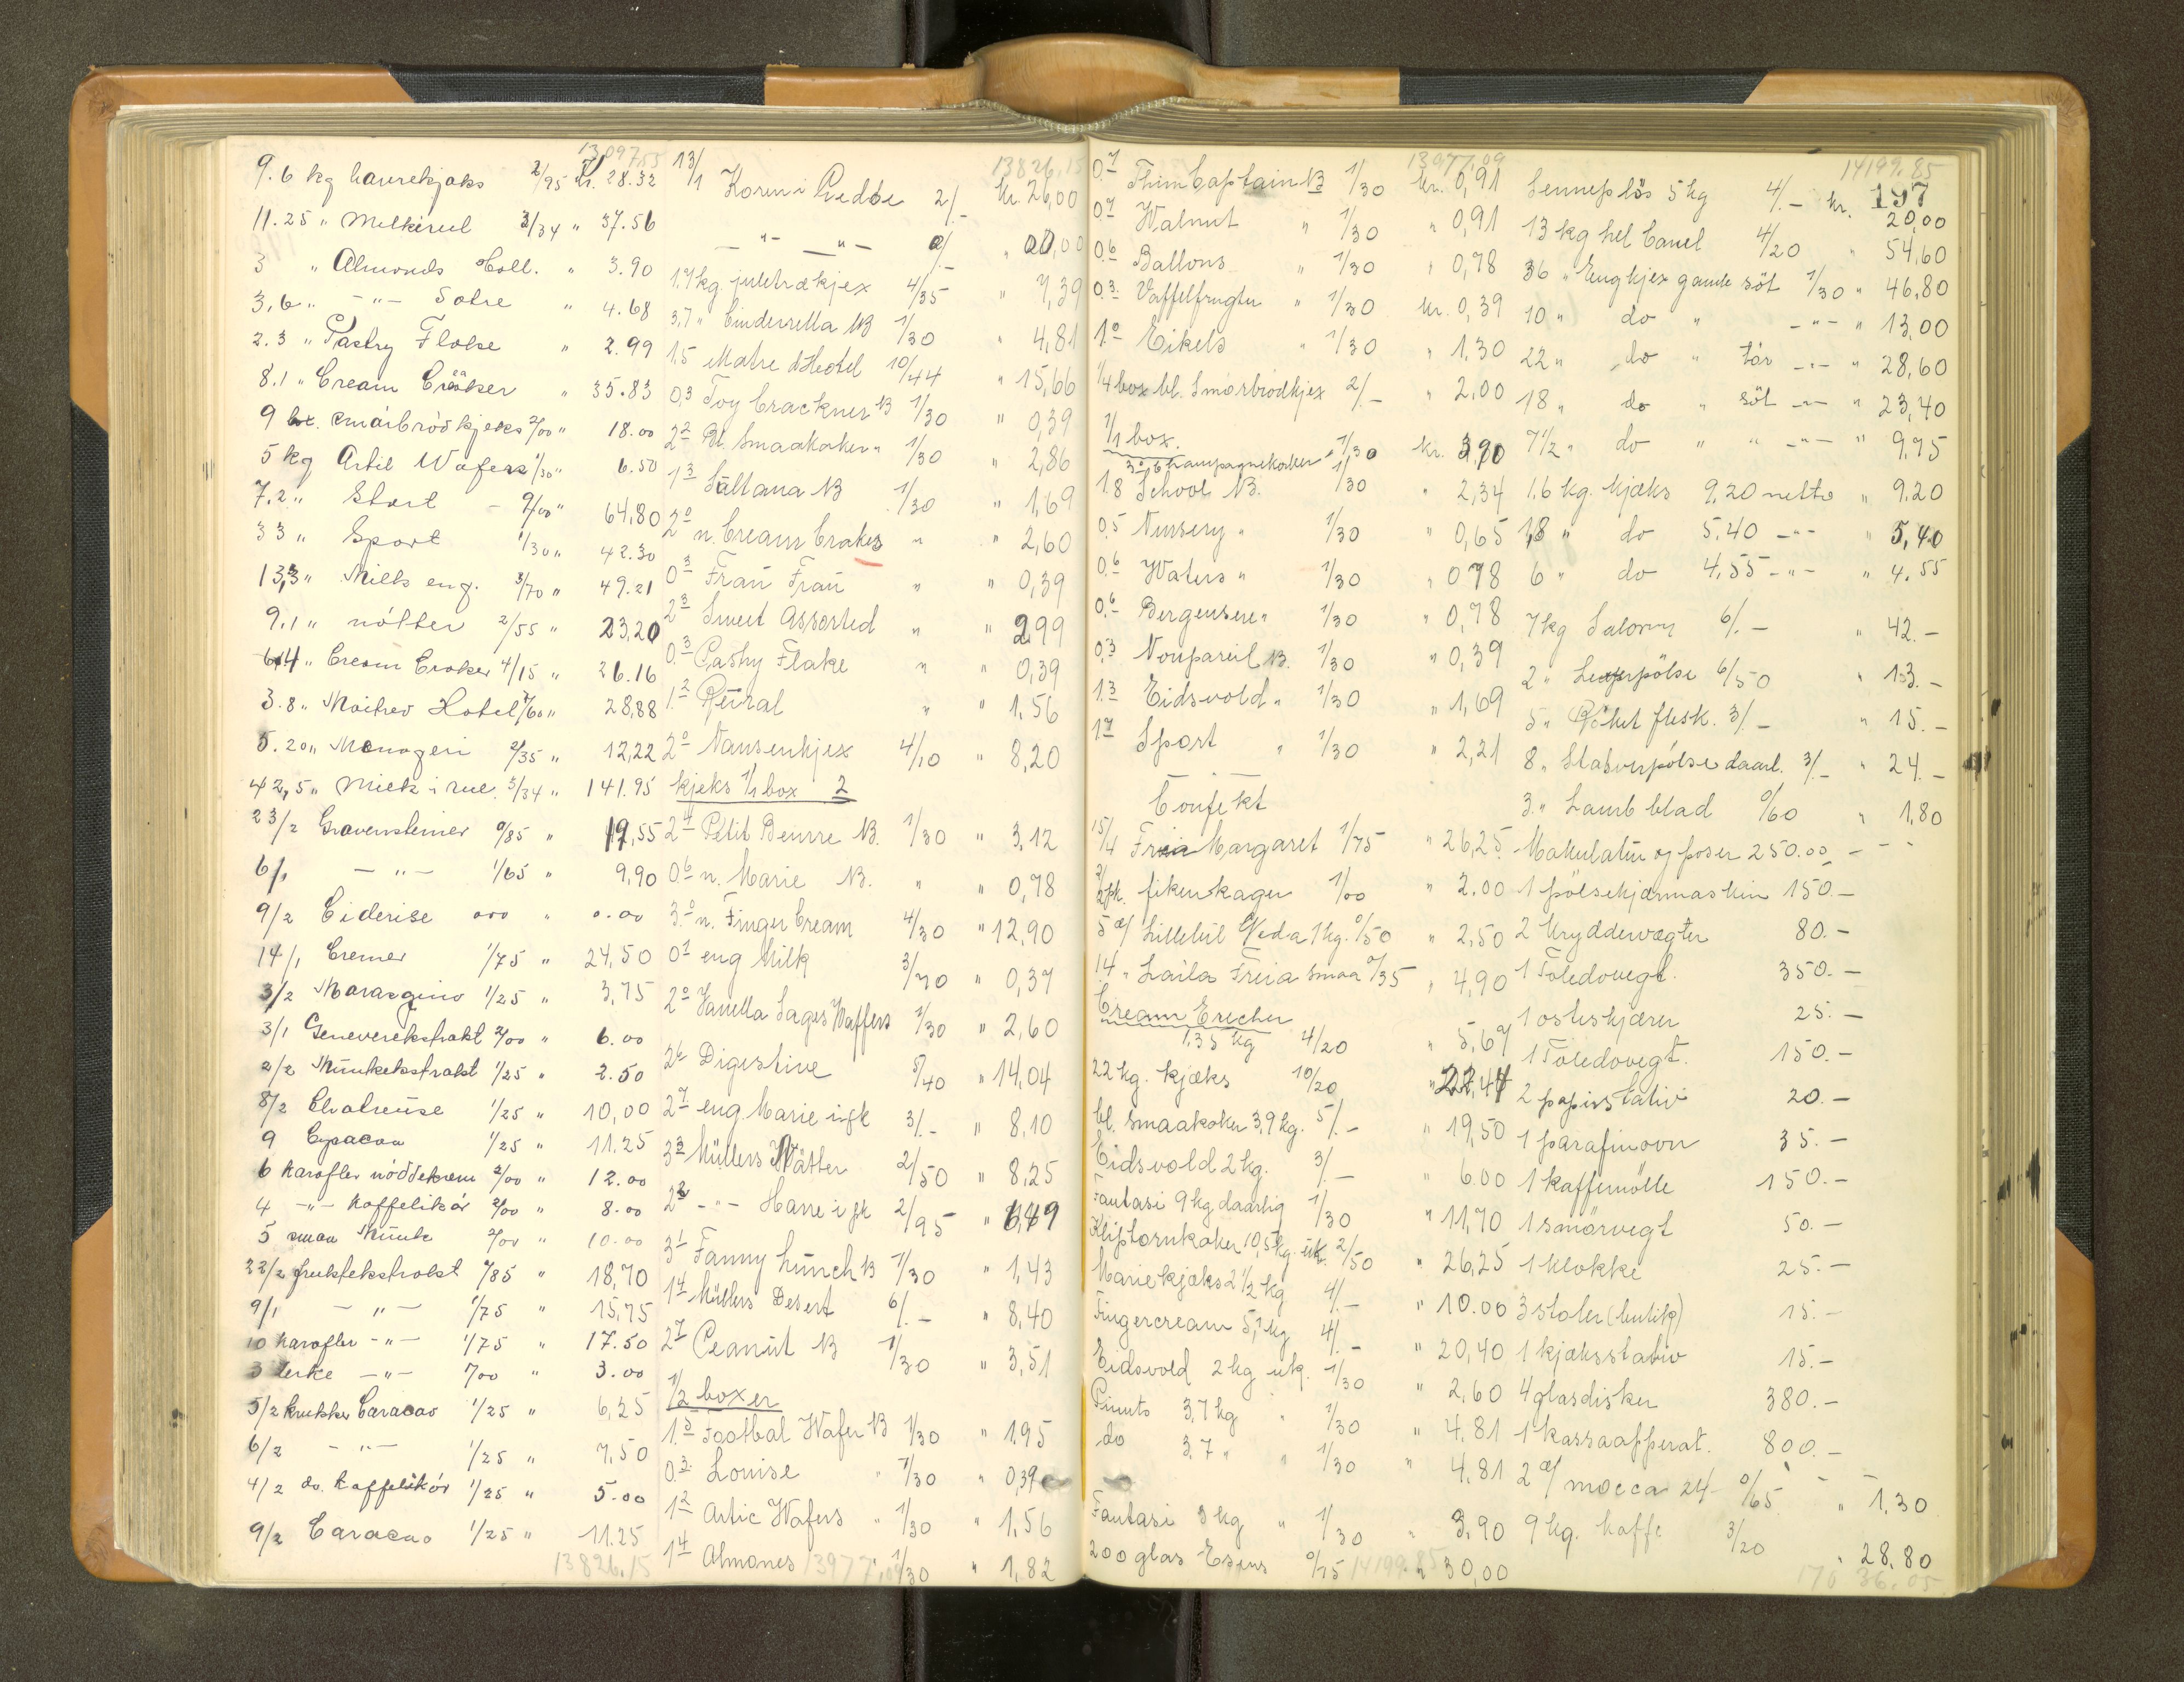 13097.55
9.6 kg havrekjaks 2/95 kr. 28.32
11.25 " Melkirul 3/34 " 37.56
3 " Almonds Coll. " 3.90
3,6 " -"- Sotre " 4.68
2.3 " Pastry Flake " 2.99
8.1 " Cream Cräker " 35.83
9 bx. smårbrödkjeks 2/00 " 18.00
5 kg Artil Wafers 1/30 " 6.50
7.2 " Start - 9/00 " 64,80
33 " Sport 1/30 " 42.30
13,3 " Milk eng. 3/70 " 49.21
9.1 " nötter 2/55 " 23,20
6,4 " Cream Craker 4/15 " 26.16
3.8 " Maitrev Hotel 7/60 " 28,88
5.20 " Menageri 2/35 " 12,22
42,5 " Milk i rul. 3/34 " 141.95
23/2 Gravensteiner 0/85 " 19,55
6/1 -"- 1/65 " 9,90
9/2 Ciderise 000 " 0.00
14/1 Cremer 1/75 " 24,50
3/2 Marasgino 1/25 " 3,75
3/1 Geneverekstrakt 2/00 " 6.00
2/2 Munkekstrakt 1/25 " 2.50
8/2 Chatreuse 1/25 " 10,00
9 Cypacau 1/25 " 11,25
6 karafler nöddekrem 2/00 " 12.00
4 -"- kaffelikör 2/00 " 8.00
5 smaa Munk 2/00 " 10.00
22/2 fruktekstrakt 0/85 " 18,70
9/1 -"- 1/75 " 15,75
10 karafler -"- 1/75 " 17.50
3 lerke -"- 1/00 " 3.00
5/2 krukker Caracao 1/25 " 6,25
6/2 -"- 1/25 " 7,50
4/2 do. kaffelikör 1/25 " 5.00
9/2 Caracao 1/25 " 11.25
13826.15
13826.15
13/1 Koren i Predbe 2/- kr. 26,00
-"- -"- 0/- " 00,00
1,7 kg. juletrækjex 4/35 " 7,39
3,7 " Cinderella NB 1/30 " 4,81
1,5 Matre d'Hotel 10/44 " 15,66
0,3 Toy Crackner NB 1/30 " 0,39
2,2 Bl. Smaakaker " 1/30 " 2,86
1,3 Saltana NB 1/30 " 1,69
2,0 n. Cream Crakes " " 2,60
0,3 Frau Frau " " 0,39
2,3 Sweet Assorted " " 2,99
0,3 Pastry Flake " " 0,39
1,2 Reiral " " 1,56
2,0 Nansenkjex 4/10 " 8,20
kjeks 1/1 box 2
2,4 Petit Beurre NB. 1/30 " 3,12
0,6 n. Marie NB. " " 0,78
3,0 n. Finger Cream 4/30 " 12,90
0,1 eng Milk 3/70 " 0,37
2,0 Vanella Sages Waffers 1/30 " 2,60
2,6 Digestive 5/40 " 14,04
2,7 eng. Marie i fk 3/- " 8,10
3,3 Müllers Nätter 2/50 " 8,25
2,2 -"- Havre i fk 2/95 " 6,49
3,1 Fanny Lunch NB 1/30 " 1,43
1,4 Müllers Desert 6/- " 8,40
2,7 Peanut NB 1/30 " 3,51
1/2 boxer
1,5 Footbal Wafer NB 1/30 " 1,95
0,3 Louise " 1/30 " 0,39
1,2 Artic Wafers " 1/30 " 1,56
1,4 Almones " 1/30 " 1,82
13977,09
13977,09
0,7 Thim Captain NB 1/30 kr. 0,91
0,7 Walnut " 1/30 " 0,91
0,6 Ballons " 1/30 " 0,78
0,3 Vaffelfrugter " 1/30 kr. 0,39
1,0 Eikels " 1/30 " 1,30
1/4 box bl. Smørbrödkjex 2/- " 2,00
1/1 box.
3,0 Champagnekaker " 1/30 kr. 3,90
1,8 School NB. 1/30 " 2,34
0,5 Nursery " 1/30 " 0,65
0,6 Waters " 1/30 " 0,78
0,6 Bergensere " 1/30 " 0,78
0,3 Nonpareil NB. 1/30 " 0,39
1,3 Eidsvold " 1/30 " 1,69
1,7 Sport " 1/30 " 2,21
Confekt
15/4 Freia Margaret 1/75 " 26,25
2/2 pk. fikenkager 1/00 " 2.00
5 æ/ Lillebil Veda 1 kg. 0/50 " 2,50
14 " Laila Freia smaa 0/35 " 4,90
Cream Crecher
1,35 kg 4/20 " 5,67
22 kg. kjæks 10/20 " 22,44
bl. smaakaker 3,9 kg. 5/- " 19,50
Eidsvold 2 kg. 3/- " 6.00
Fantasi 9 kg daarlig 1/30 " 11,70
Kliptornkaker 10,5 kg. uk. 2/50 " 26,25
Mariekjæks 2 1/2 kg 4/- " 10.00
Fingercream 5,1 kg 4/- " 20,40
Eidsvold 2 kg uk. 1/30 " 2,60
Pinuts 3,7 kg " 1/30 " 4.81
do 3,7 " " 1/30 " 4.81
Fantasi 3 kg " 1/30 " 3,90
200 glas Esens 0/15 " 30,00
14199.85
14199.85
197
Senneplös 5 kg 4/- kr. 20,00
13 kg hel Canel 4/20 " 54,60
36 " Eng kjex gamle söt 1/30 " 46,80
10 " do " -"- " 13,00
22 " do " tör -"- " 28,60
18 " do " söt -"- " 23,40
7 1/2 " do " " -"- " 9,75
1,6 kg. kjæks 9,20 netto " 9,20
1,8 " do 5,40 -"- " 5,40
6 " do 4,55 -"- " 4.55
7 kg Salomy 6/- " 42.-
2 " Leverpölse 6/50 " 13.-
5 " Röket flesk. 3/- " 15.-
8 " Stabverpölse daarl. 3/- " 24.-
3 " Lamb blad 0/60 " 1,80
Makulatur og poser 250.00 - - -
1 pölsekjærmaskin 150.-
2 kryddervægter 80.-
1 Toledovegt. 350.-
1 osteskjærer 25.-
1 Toledovegt. 150.-
2 papirstativ 20.-
1 parafinovn 35.-
1 kaffemölle 150.-
1 smörvegt 50.-
1 klokke 25.-
3 stoler (butik) 15.-
1 kjæksstativ 15.-
4 glasdisker 380.-
1 kassaapperat. 800.-
2 æ/ mocca 24- 0/65 - " 1,30
9 kg. kaffe 3/20 " 28.80
17636.05